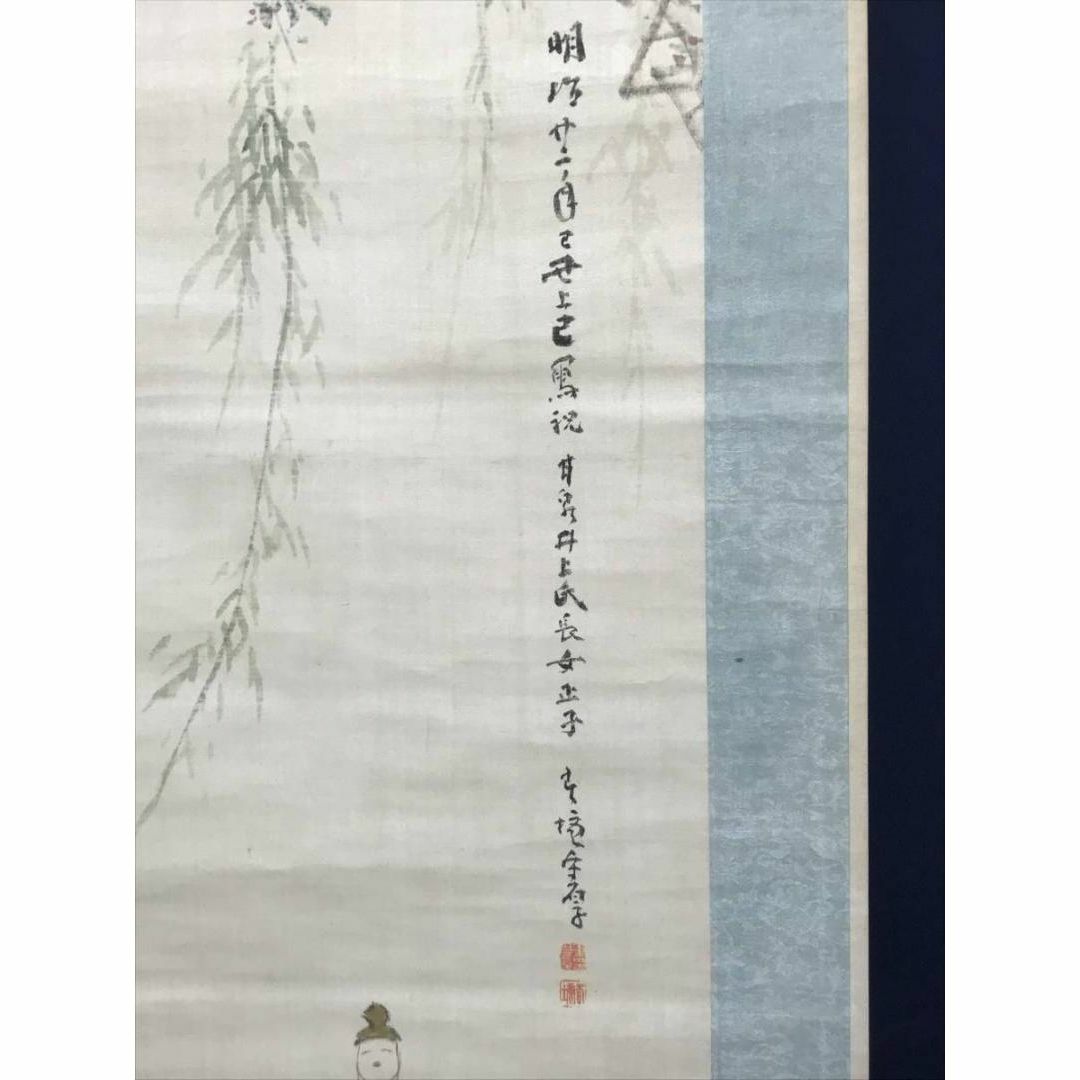 明治廿二年己丑上巳寫祝 甘泉井上氏長女正子